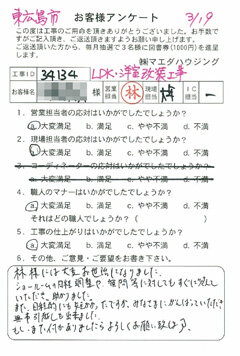 東広島市 お客様アンケート 3/19
この度は工事のご用命を頂きありがとうございました。お手数で
すがご記入頂き、ご返送頂きますようお願い申し上げます。
ご返送頂いた方から、毎月抽選で3名様に図書券(1000円)を進呈
します。 ㈱マエダハウジング
工事ID 34134 LDK・洋室改装工事
お客様名 様 営業担当 林 現場担当 IC 一
1. 営業担当者の応対はいかがでしたでしょうか?
a.大変満足 b.満足 c.やや不満 d.不満
2. 現場担当者の応対はいかがでしたでしょうか?
a.大変満足 b.満足 c.やや不満 d.不満
3. コーディネーターの応対はいかがでしたでしょうか?
a.大変満足 b.満足 c.やや不満 d.不満
4. 職人のマナーはいかがでしたでしょうか?
a.大変満足 b.満足 c.やや不満 d.不満
それはどの職人でしょうか?( )
5. 工事の仕上がりはいかがでしたでしょうか?
a.大変満足 b.満足 c.やや不満 d.不満
6. その他、ご意見・ご要望をお書き下さい。
林様には大変お世話になりました。
ショールーム日程調整や、質問等に対してもすぐに対応して
いただき、助かりました。
また、日程的にも
無事引越しも出来ました。
もし、また何かありましたらよろしくお願い致します。